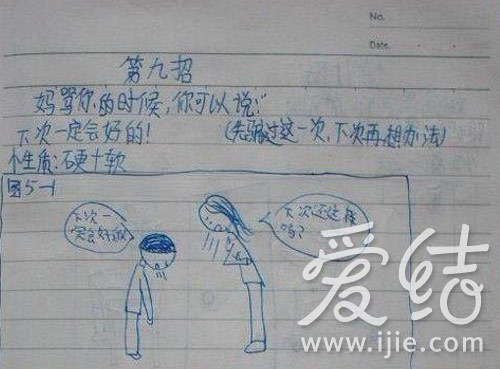 No.
Date.
第九招
妈骂你的时候,你可以说:"
下次一定会好的! (先骗过这一次,下次再想办法)
个性质:硬十软
图5-1
下次一
定会好的
下次还这样
吗?
爱结
www.ijie.com